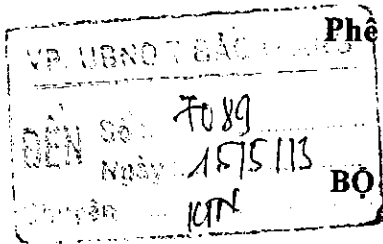 Phê
VP. UBND T BẮC
ĐẾN Số: 7089
Ngày 15/5/13
BỘ
Chuyển KTN